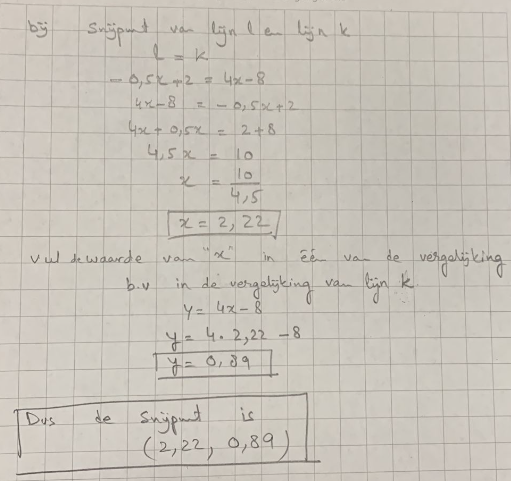 bij snijpunt van lijn l en lijn k
l = k
-0,5x+2 = 4x-8
4x-8 = -0,5x+2
4x+0,5x = 2+8
4,5x = 10
x = 10/4,5
x = 2,22
vul de waarde van "x" in één van de vergelijking
b.v in de vergelijking van lijn k
y = 4x-8
y = 4·2,22-8
y = 0,89
Dus de snijpunt is
(2,22, 0,89)